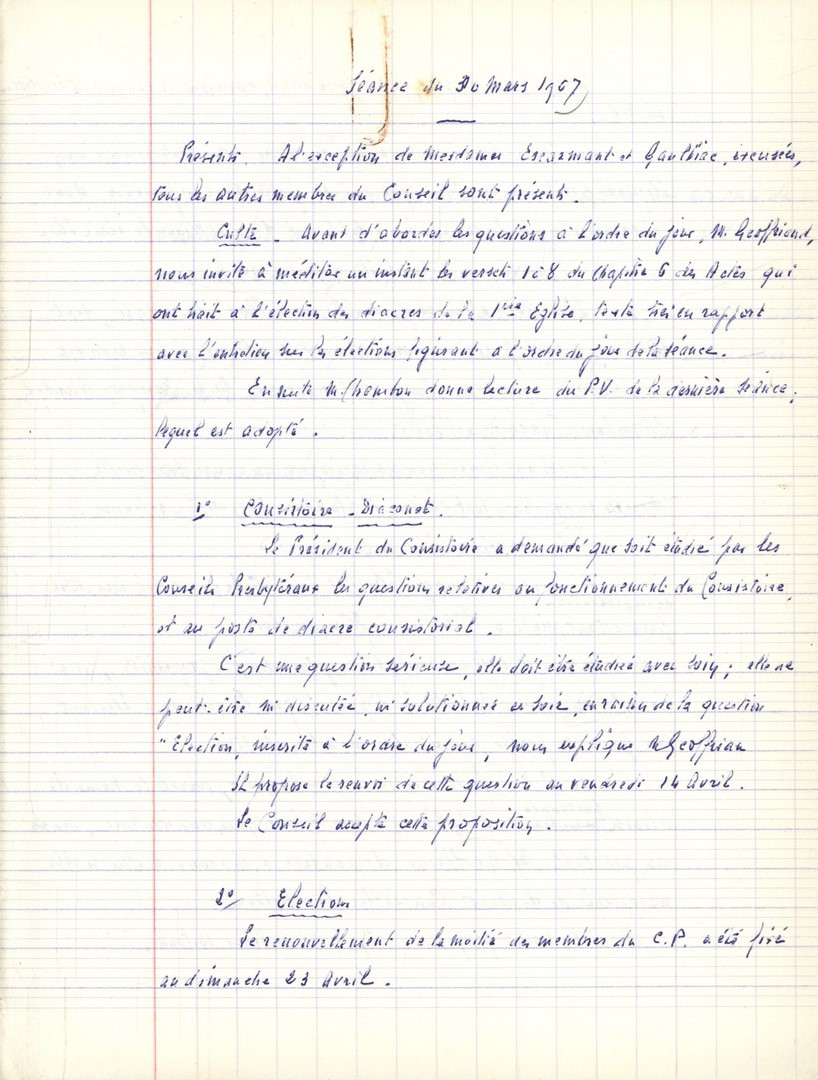 Séance du 30 Mars 1967
Présents. A l'exception de Mesdames Escarmant et Gaulhiac, excusées,
tous les autres membres du Conseil sont présents.
Culte - Avant d'aborder les questions à l'ordre du jour, M. Geoffriand,
nous invite à méditer un instant les versets 1 à 8 du Chapitre 6 des Actes qui
ont trait à l'élection des diacres de la 1ère Eglise, texte bien en rapport
avec l'entretien sur les élections figurant à l'ordre du jour de la séance.
Ensuite M. Chambon donne lecture du P.V. de la dernière séance,
lequel est adopté.
1° Consistoire - Diaconat.
Le Président du Consistoire a demandé que soit étudié par les
Conseils Presbytéraux les questions relatives au fonctionnement du Consistoire,
et au poste de diacre consistorial.
C'est une question sérieuse, elle doit être étudiée avec soin ; elle ne
peut-être ni discutée, ni solutionnée ce soir, en raison de la question
"Election, inscrite à l'ordre du jour, nous explique M. Geoffrian
Il propose le renvoi de cette question au vendredi 14 Avril.
Le Conseil accepte cette proposition.
2° Elections
Le renouvellement de la moitié des membres du C.P. a été fixé
au dimanche 23 Avril.